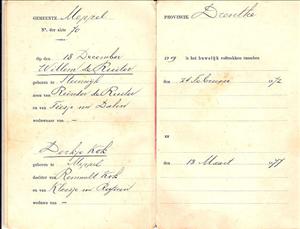 GEMEENTE Meppel
No. der akte 70
Op den 18 December
Willem de Ruiter
geboren te Steenwijk
zoon van Reinder de Ruiter
en van Feesje van Dalen
weduwnaar van —
Dorkje Kok
geboren te Meppel
dochter van Remmelt Kok
en van Klaasje van
weduwe van —
PROVINCIE Drenthe
19 is het huwelijk voltrokken tusschen
den 24 Februari 1872
en
den 18 Maart 1877